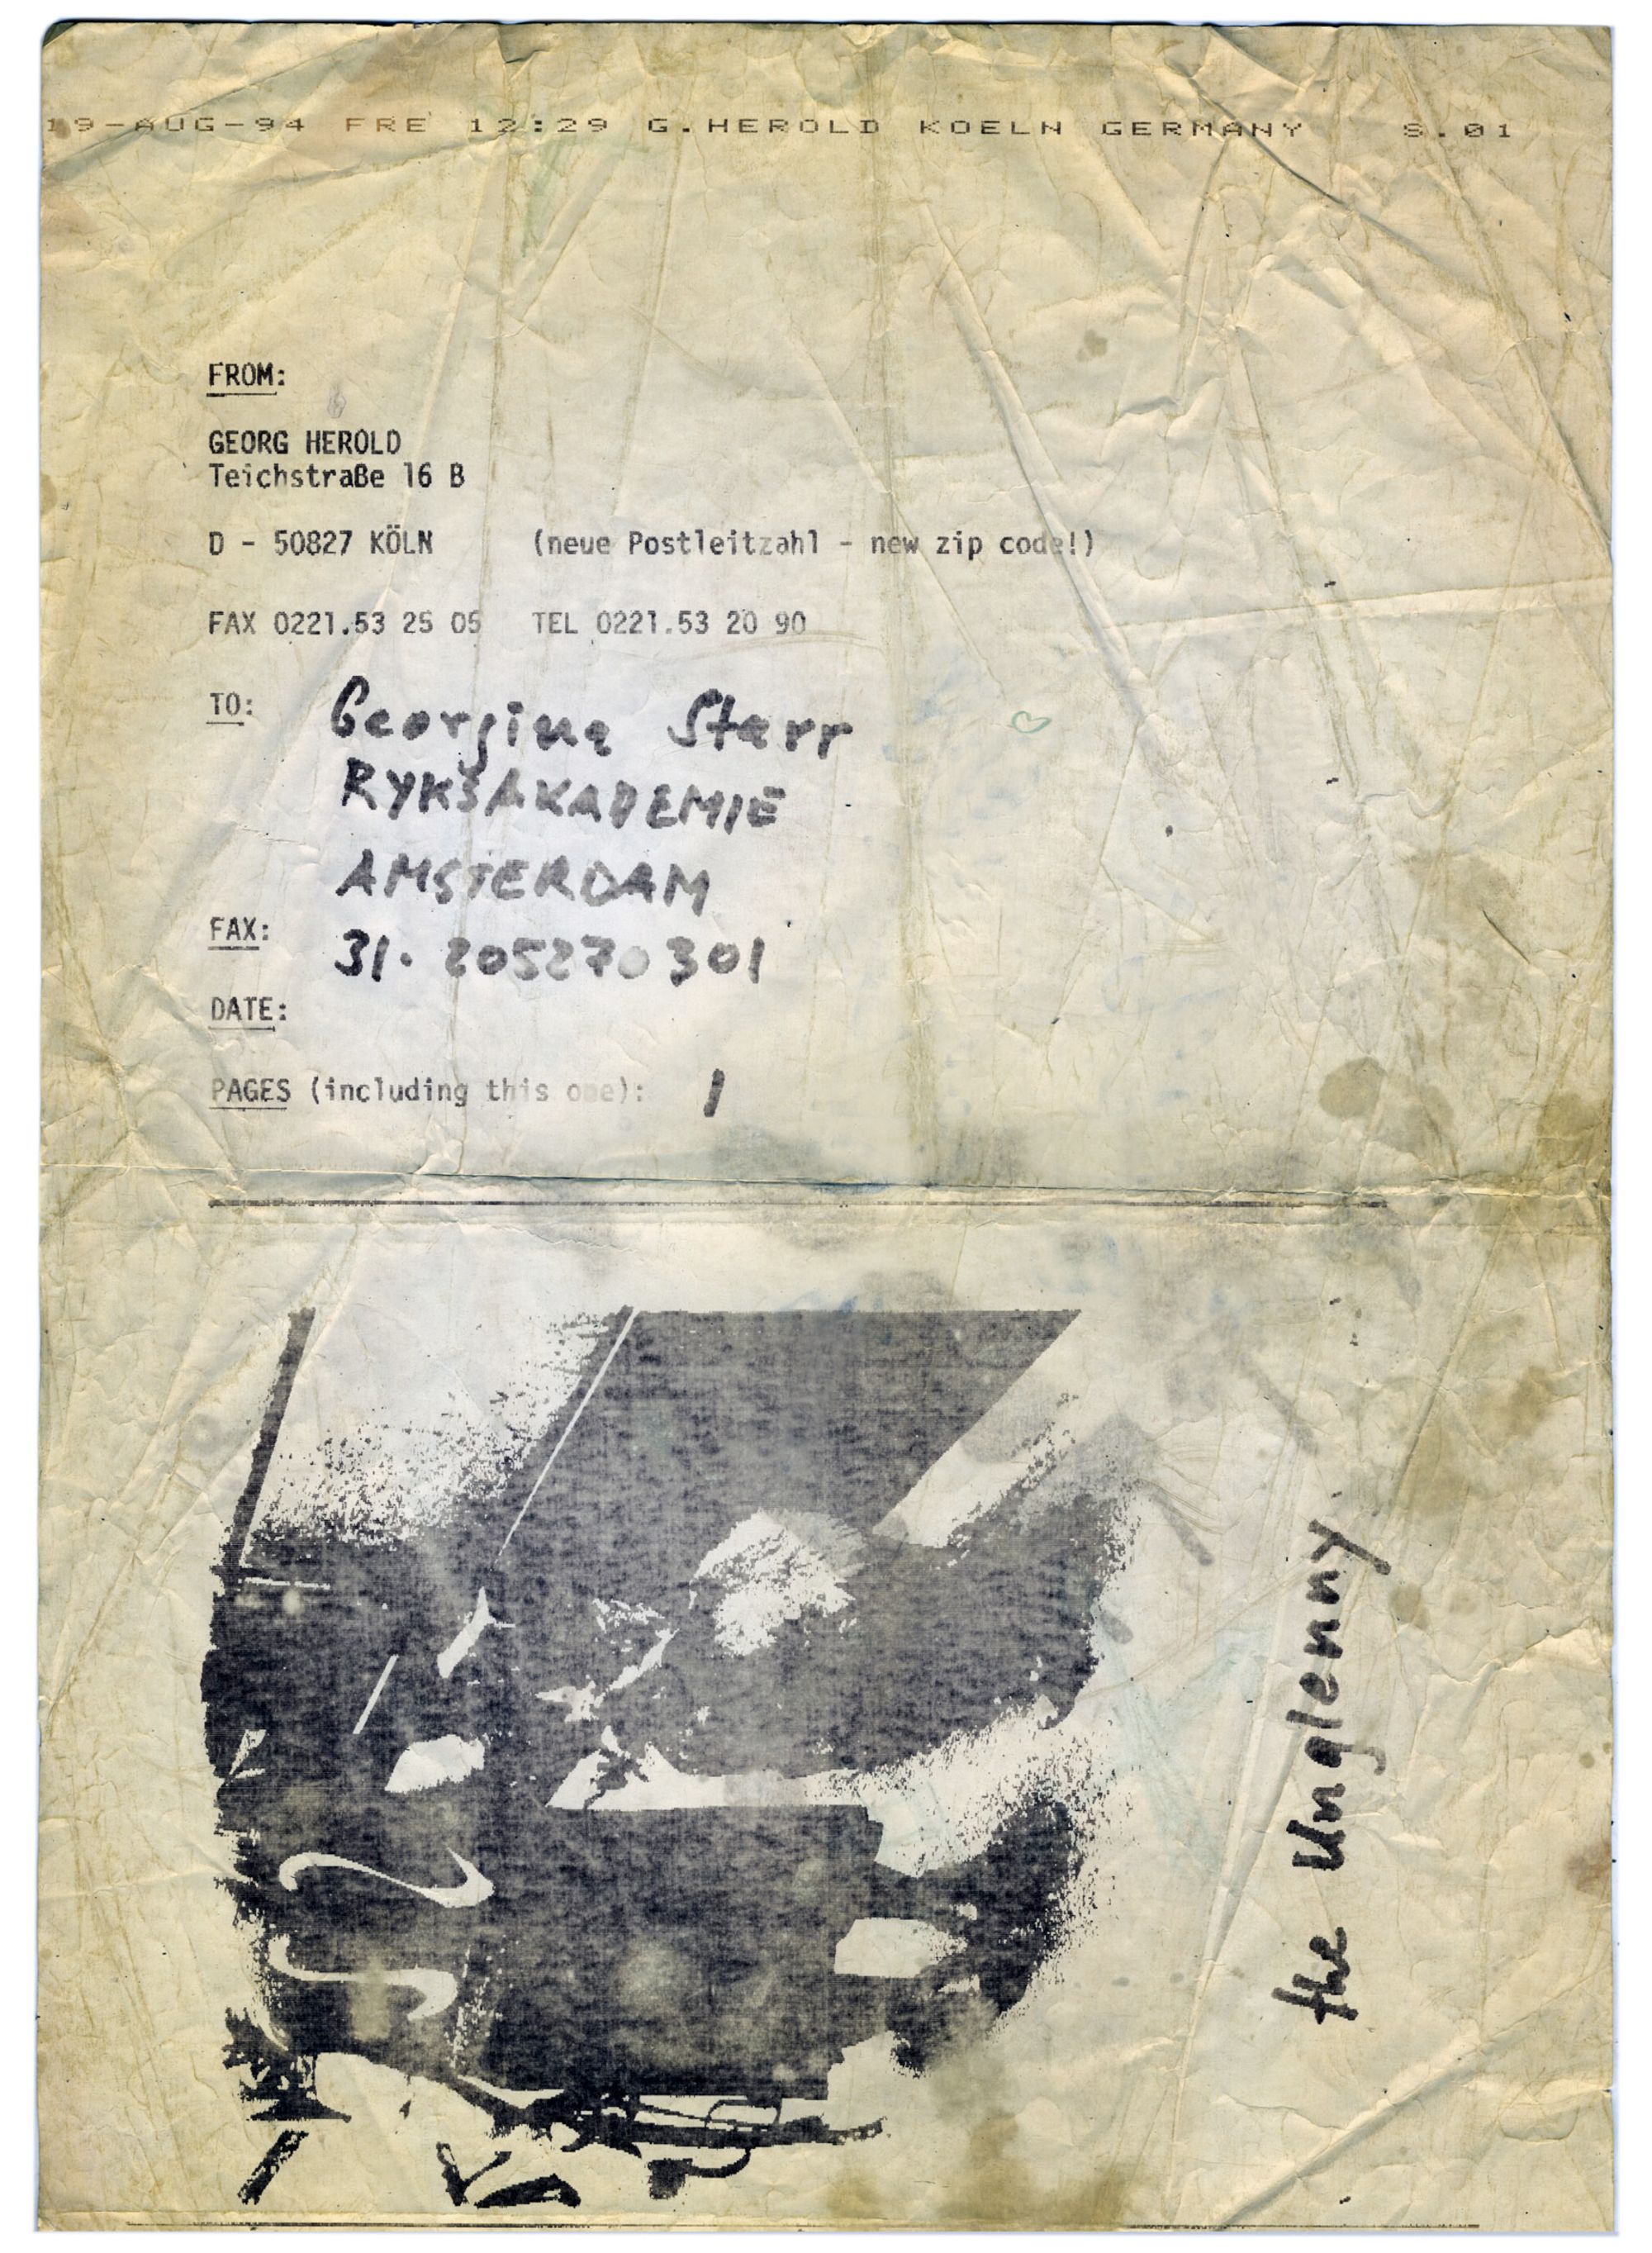 19-AUG-94 FRE 12:29 G.HEROLD KOELN GERMANY S.01
FROM:
GEORG HEROLD
Teichstraße 16 B
D - 50827 KÖLN (neue Postleitzahl - new zip code!)
FAX 0221.53 25 05 TEL 0221.53 20 90
TO: Georgina Starr
RYKSAKADEMIE
AMSTERDAM
FAX: 31. 205270301
DATE:
PAGES (including this one): 1
the Unglenny.